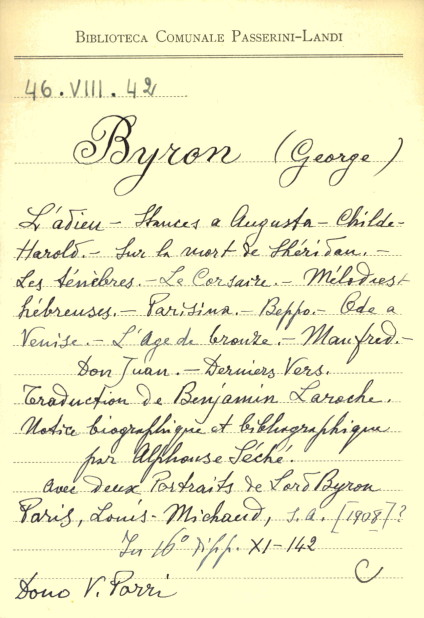 BIBLIOTECA COMUNALE PASSERINI-LANDI
46.VIII.42
Byron (George)
L'adieu - Stances a Augusta - Childe-
Harold. - Sur la mort de Shéridan. -
Les ténèbres. - Le Corsaire. - Mélodies
hébreuses. - Parisina. - Beppo. - Ode a
Venise. - L'Age de bronze. - Manfred. -
Don Juan. - Derniers Vers.
Traduction de Benjamin Laroche.
Notice biographique et bibliographique
par Alphonse Séché.
Avec deux Portraits de Lord Byron
Paris, Louis-Michaud, s.a. [1908]?
In 16° di pp. XI-142
C
Dono V. Parri